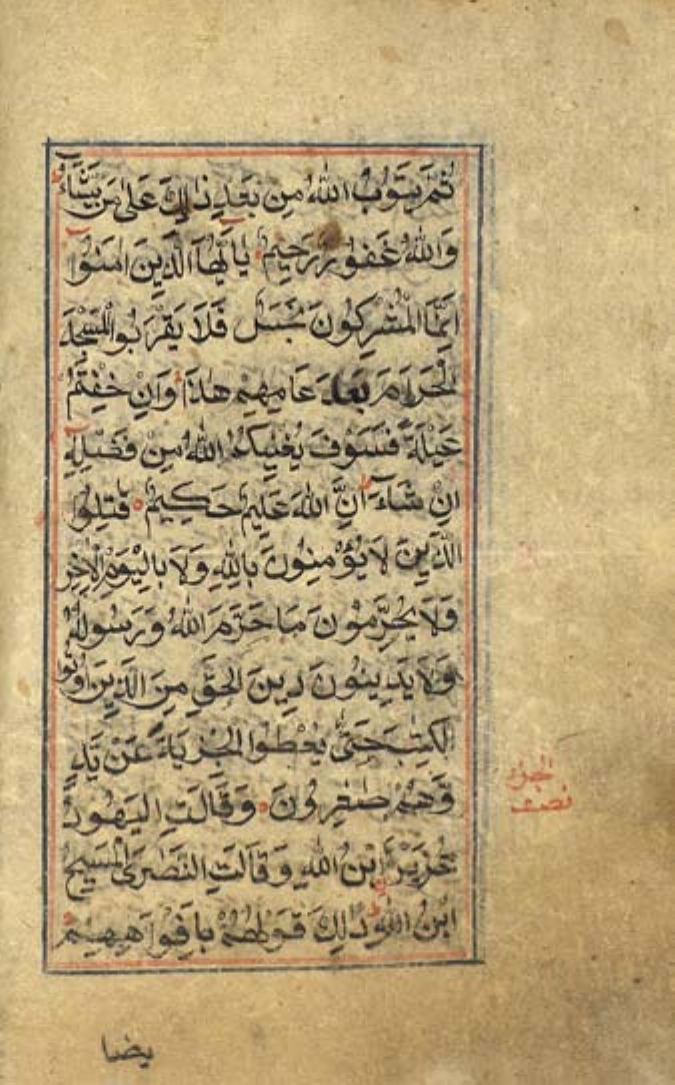 ثُمَّ يَتُوْبُ اللهُ مِنْ بَعْدِ ذٰلِكَ عَلٰى مَنْ يَّشَآءُ
وَاللهُ غَفُوْرٌ رَّحِيْمٌ يٰاَيُّهَا الَّذِيْنَ اٰمَنُوْٓا
اِنَّمَا الْمُشْرِكُوْنَ نَجَسٌ فَلَا يَقْرَبُوا الْمَسْجِدَ
الْحَرَامَ بَعْدَ عَامِهِمْ هٰذَا وَاِنْ خِفْتُمْ
عَيْلَةً فَسَوْفَ يُغْنِيْكُمُ اللهُ مِنْ فَضْلِهٖ
اِنْ شَآءَ اِنَّ اللهَ عَلِيْمٌ حَكِيْمٌ قٰتِلُوا
الَّذِيْنَ لَا يُؤْمِنُوْنَ بِاللهِ وَلَا بِالْيَوْمِ الْاٰخِرِ
وَلَا يُحَرِّمُوْنَ مَا حَرَّمَ اللهُ وَرَسُوْلُهٗ
وَلَا يَدِيْنُوْنَ دِيْنَ الْحَقِّ مِنَ الَّذِيْنَ اُوْتُوا
الْكِتٰبَ حَتّٰى يُعْطُوا الْجِزْيَةَ عَنْ يَّدٍ
وَّهُمْ صٰغِرُوْنَ وَقَالَتِ الْيَهُوْدُ
عُزَيْرٌ ابْنُ اللهِ وَقَالَتِ النَّصٰرَى الْمَسِيْحُ
ابْنُ اللهِ ذٰلِكَ قَوْلُهُمْ بِاَفْوَاهِهِمْ
نصف
يضا